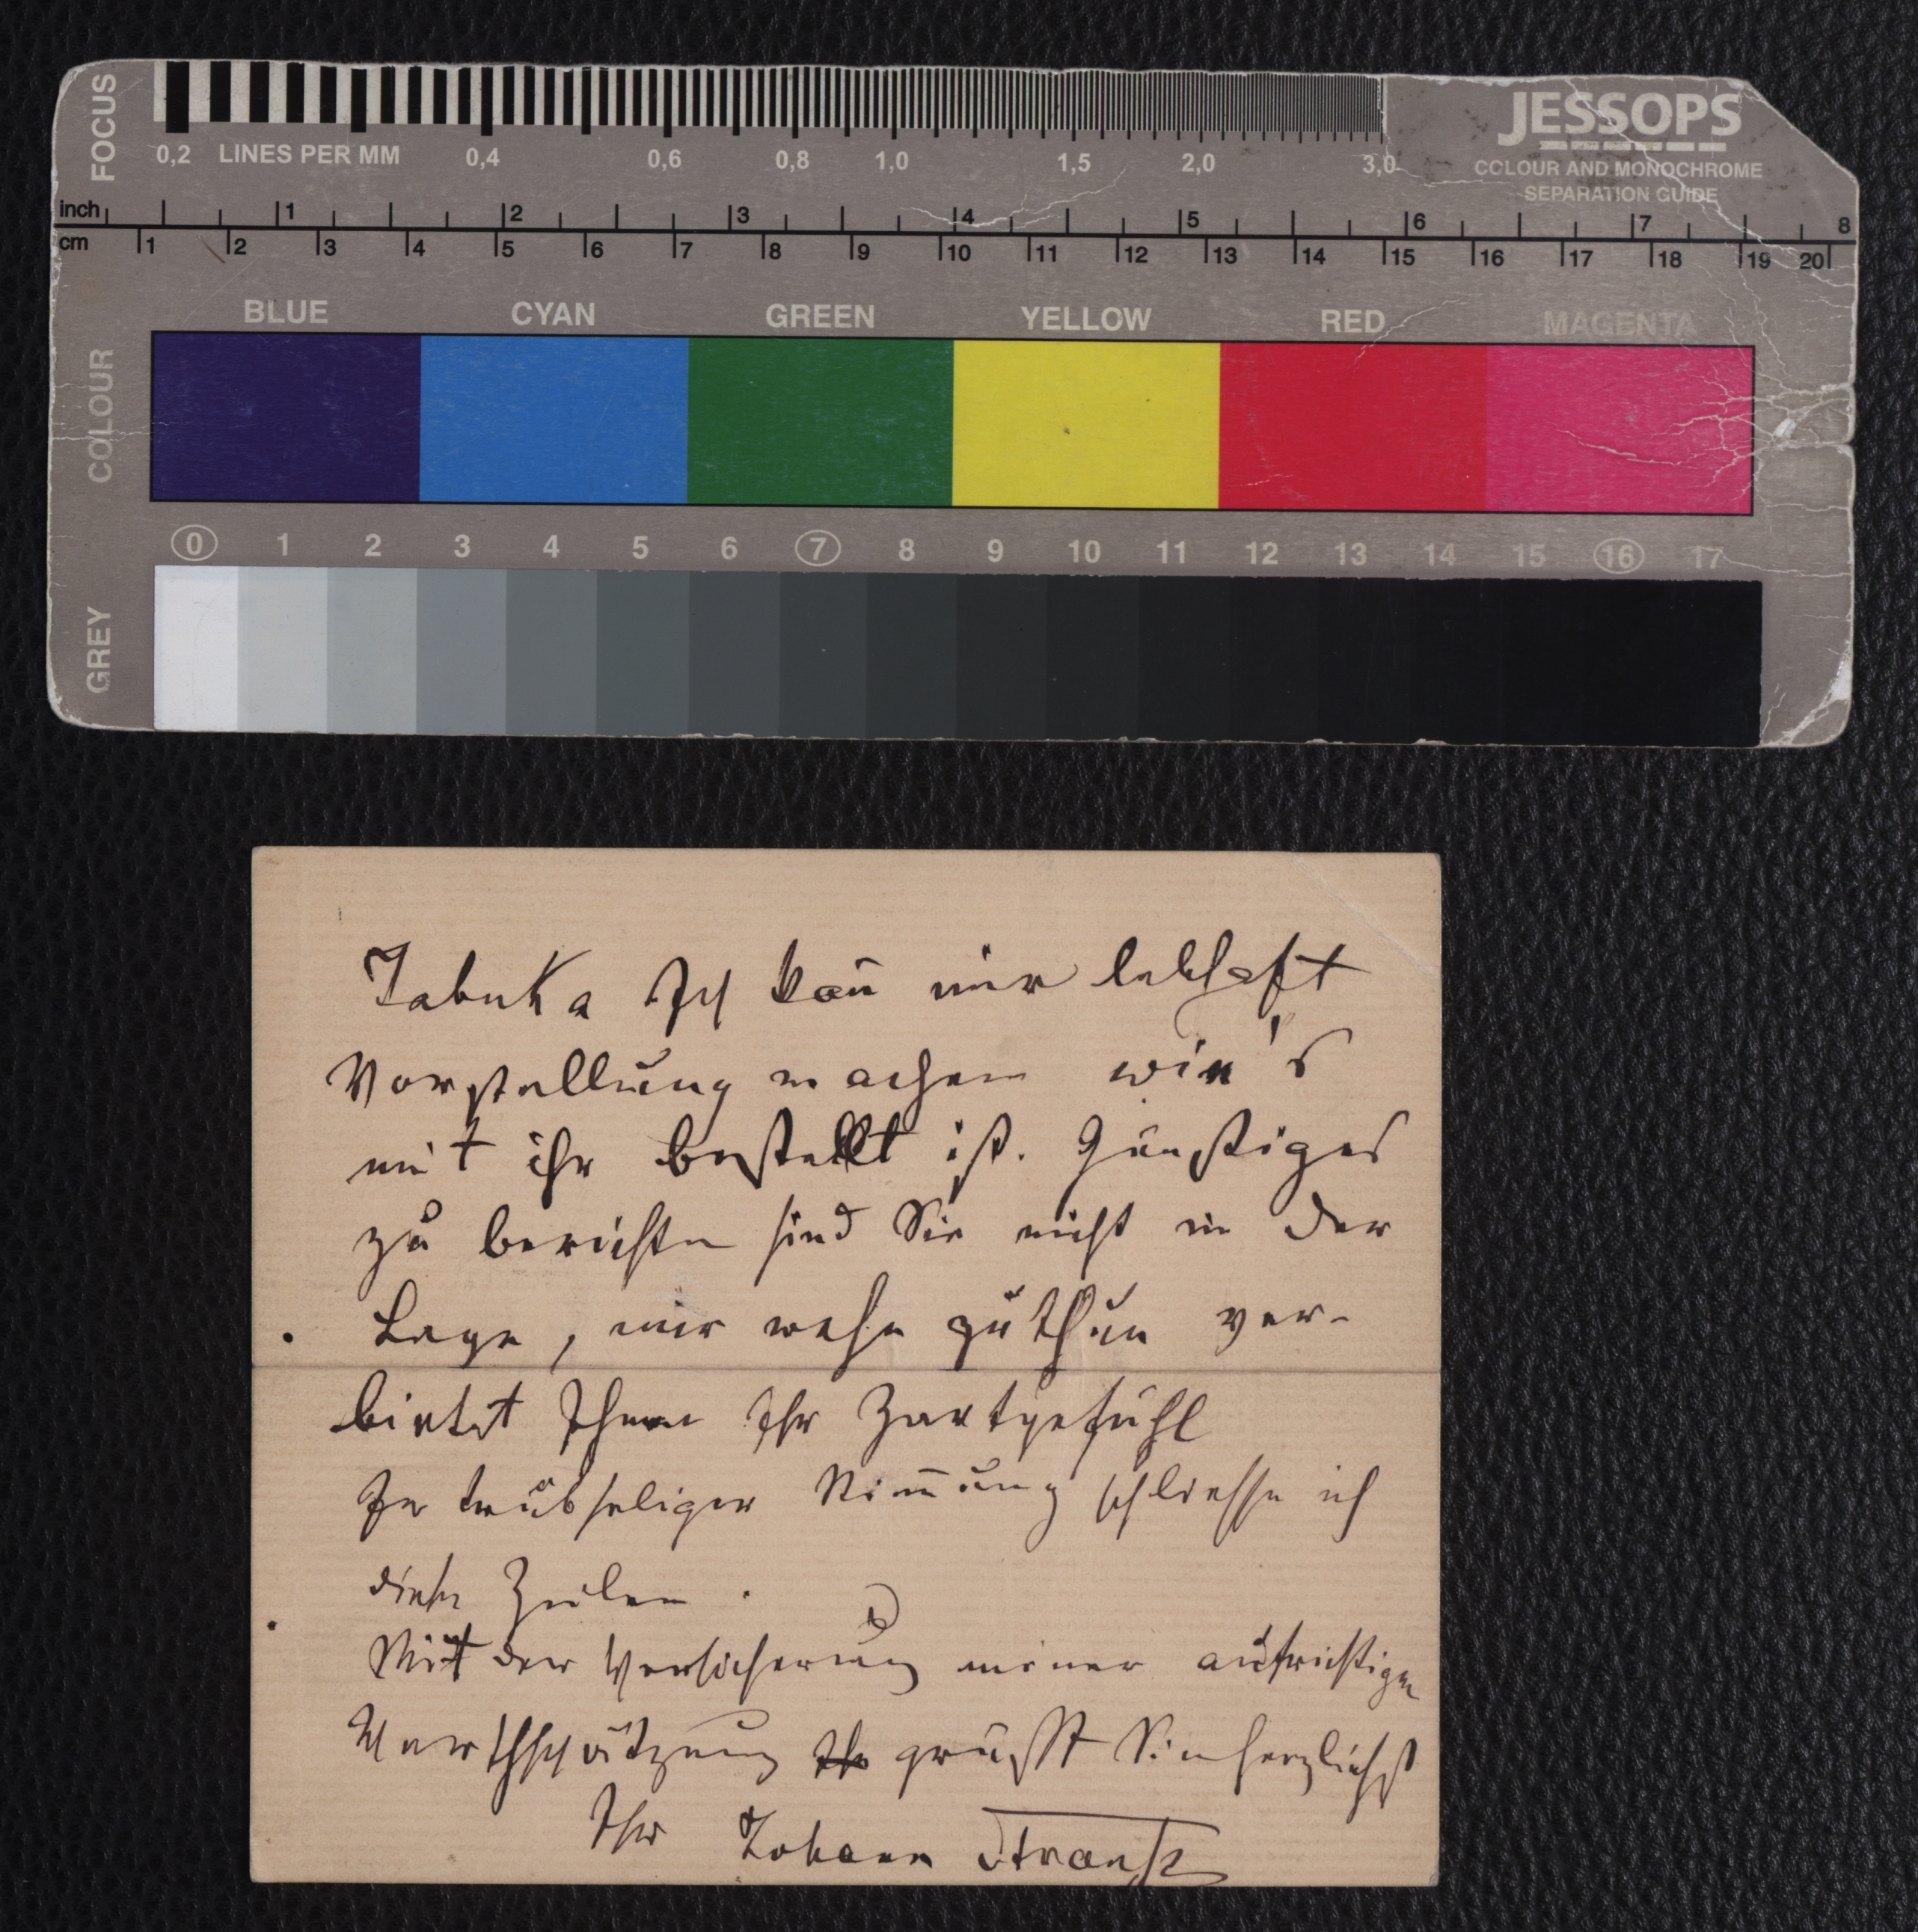 FOCUS
JESSOPS
COLOUR AND MONOCHROME
SEPARATION GUIDE
0,2 LINES PER MM 0,4 0,6 0,8 1,0 1,5 2,0 3,0
inch 1 2 3 4 5 6 7 8
cm 1 2 3 4 5 6 7 8 9 10 11 12 13 14 15 16 17 18 19 20
COLOUR
BLUE CYAN GREEN YELLOW RED MAGENTA
0 1 2 3 4 5 6 7 8 9 10 11 12 13 14 15 16 17
GREY
Jabuka Ich kan̄ mir lebhaft
Vorstellung machen wie's
mit ihr bestellt ist. Günstiges
zu berichten sind Sie nicht in der
Lage, mir wehe zu thun ver-
bietet Ihnen Ihr Zartgefühl
In trübseliger Stim̄ung schliesse ich
diese Zeilen.
Mit der Versicherung meiner aufrichtigen
Werthschätzung grüsst Sie herzlichst
Ihr Johann Strauss